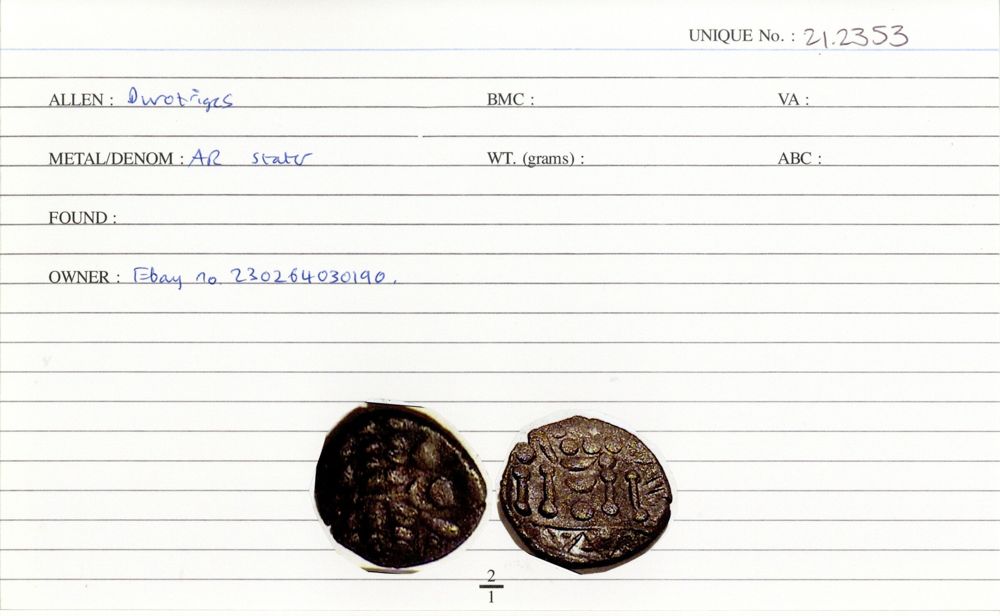 UNIQUE No. : 21.2353
ALLEN : Durotriges BMC : VA :
METAL/DENOM : AR stater WT. (grams) : ABC :
FOUND :
OWNER : Ebay no. 230264030190.
2
1